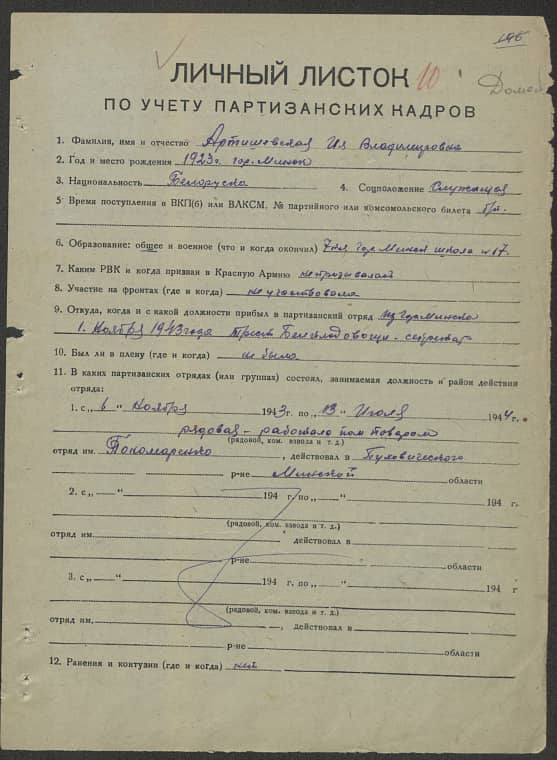 196
ЛИЧНЫЙ ЛИСТОК 10
Домой
ПО УЧЕТУ ПАРТИЗАНСКИХ КАДРОВ
1. Фамилия, имя и отчество Артишевская Ия Владимировна
2. Год и место рождения 1923 г. гор. Минск
3. Национальность Белоруска 4. Соцположение Служащая
5 Время поступления в ВКП(б) или ВЛКСМ, № партийного или комсомольского билета б/п.
6. Образование: общее и военное (что и когда окончил) 7 кл гор Минск школа №17.
7. Каким РВК и когда призван в Красную Армию не призывалась
8. Участие на фронтах (где и когда) не участвовала
9. Откуда, когда и с какой должности прибыл в партизанский отряд из гор Минска
1. Ноября 1943 года Трест - секретарь
10. Был ли в плену (где и когда) не была
11. В каких партизанских отрядах (или группах) состоял, занимаемая должность и район действия
отряда:
1. с „ 6 " Ноября 1943 г. по „ 13 " Июля 1944 г.
рядовая - работала пом поваром
(рядовой, ком. взвода и т. д.)
отряд им. Пономаренко, действовал в Пуховического
р-не Минской области
2. с „ " 194 г. по „ " 194 г.
(рядовой, ком. взвода и т. д.)
отряд им. , действовал в
р-не области
3. с „ " 194 г. по „ " 194 г
(рядовой, ком. взвода и т. д.)
отряд им. , действовал в
р-не области
12. Ранения и контузии (где и когда) нет